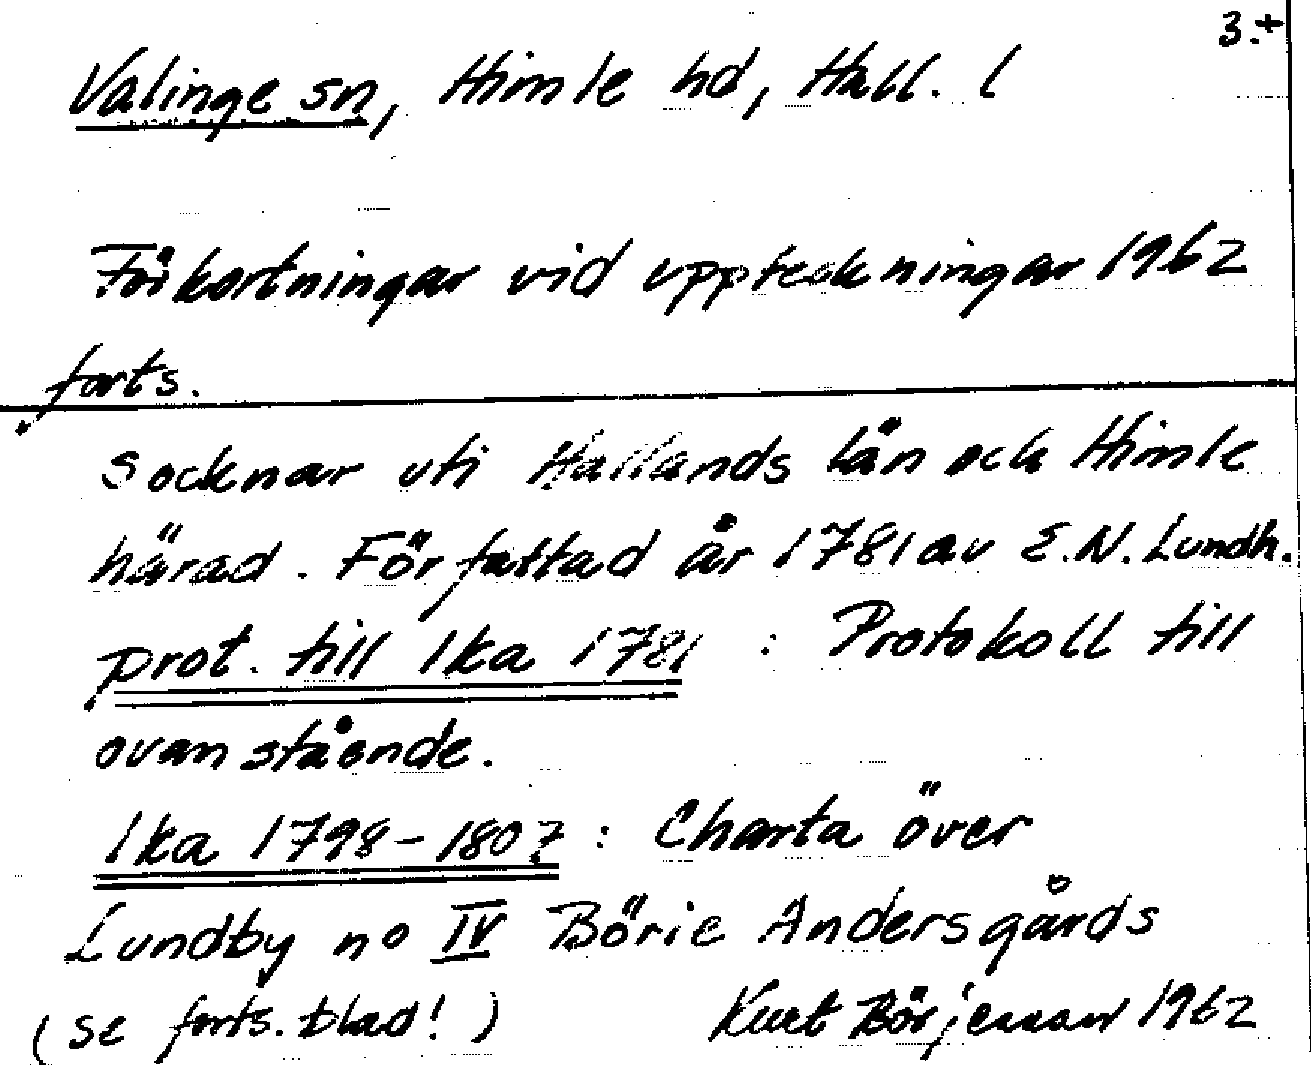 3.+
Valinge sn, Himle hd, Hall. l
Förkortningar vid uppteckningar 1962
forts.
Socknar uti Hallands län och Himle
härad. Författad år 1781 av E.N. Lundh.
prot. till lka 1781 : Protokoll till
ovanstående.
lka 1798-1807 : Charta över
Lundby no IV Börie Andersgårds
(se forts. blad!) Kurt Börjesson 1962